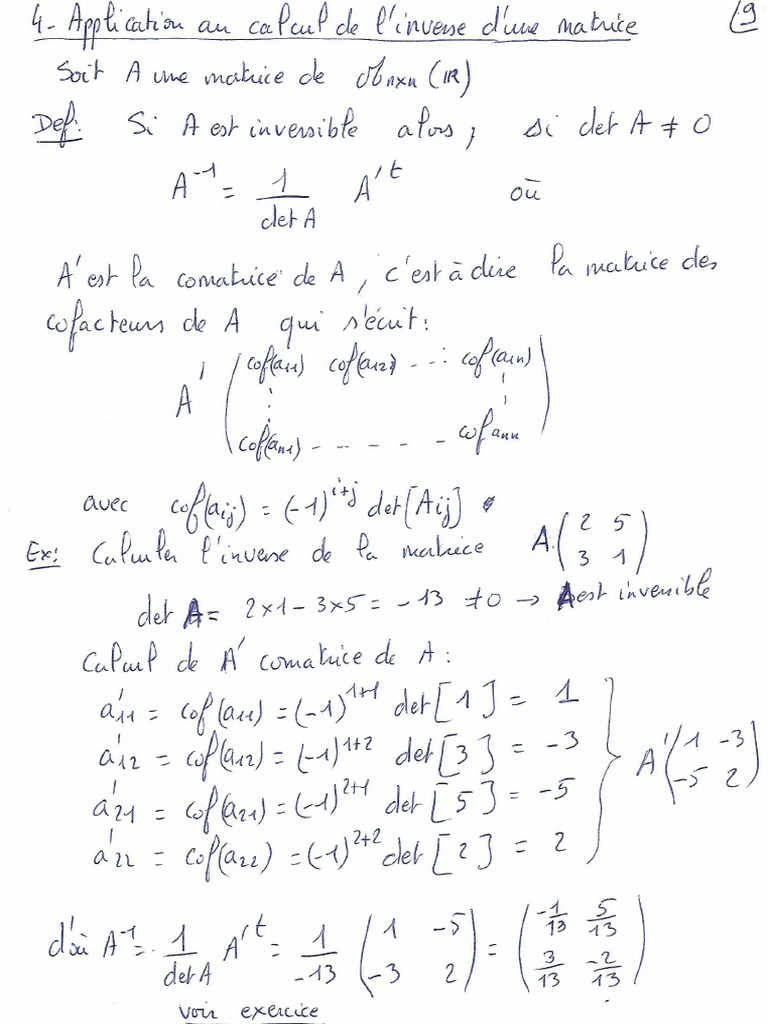 4- Application au calcul de l'inverse d'une matrice 9
Soit A une matrice de 𝓜n×n (IR)
Def: Si A est inversible alors, si det A ≠ 0
A⁻¹ = 1/det A A'ᵗ où
A' est la comatrice de A, c'est à dire la matrice des
cofacteurs de A qui s'écrit:
A' ( cof(a11) cof(a12) - - - cof(a1n)
cof(an1) - - - - - - cof ann )
avec cof(aij) = (-1)^(i+j) det[Aij]
Ex: Calculer l'inverse de la matrice A. ( 2 5
3 1 )
det A = 2×1 - 3×5 = -13 ≠ 0 → A est inversible
Calcul de A' comatrice de A :
a'11 = cof(a11) = (-1)^(1+1) det[1] = 1
a'12 = cof(a12) = (-1)^(1+2) det[3] = -3
A' ( 1 -3
-5 2 )
a'21 = cof(a21) = (-1)^(2+1) det[5] = -5
a'22 = cof(a22) = (-1)^(2+2) det[2] = 2
d'où A⁻¹ = 1/det A A'ᵗ = 1/-13 ( 1 -5
-3 2 ) = ( -1/13 5/13
3/13 -2/13 )
voir exercice